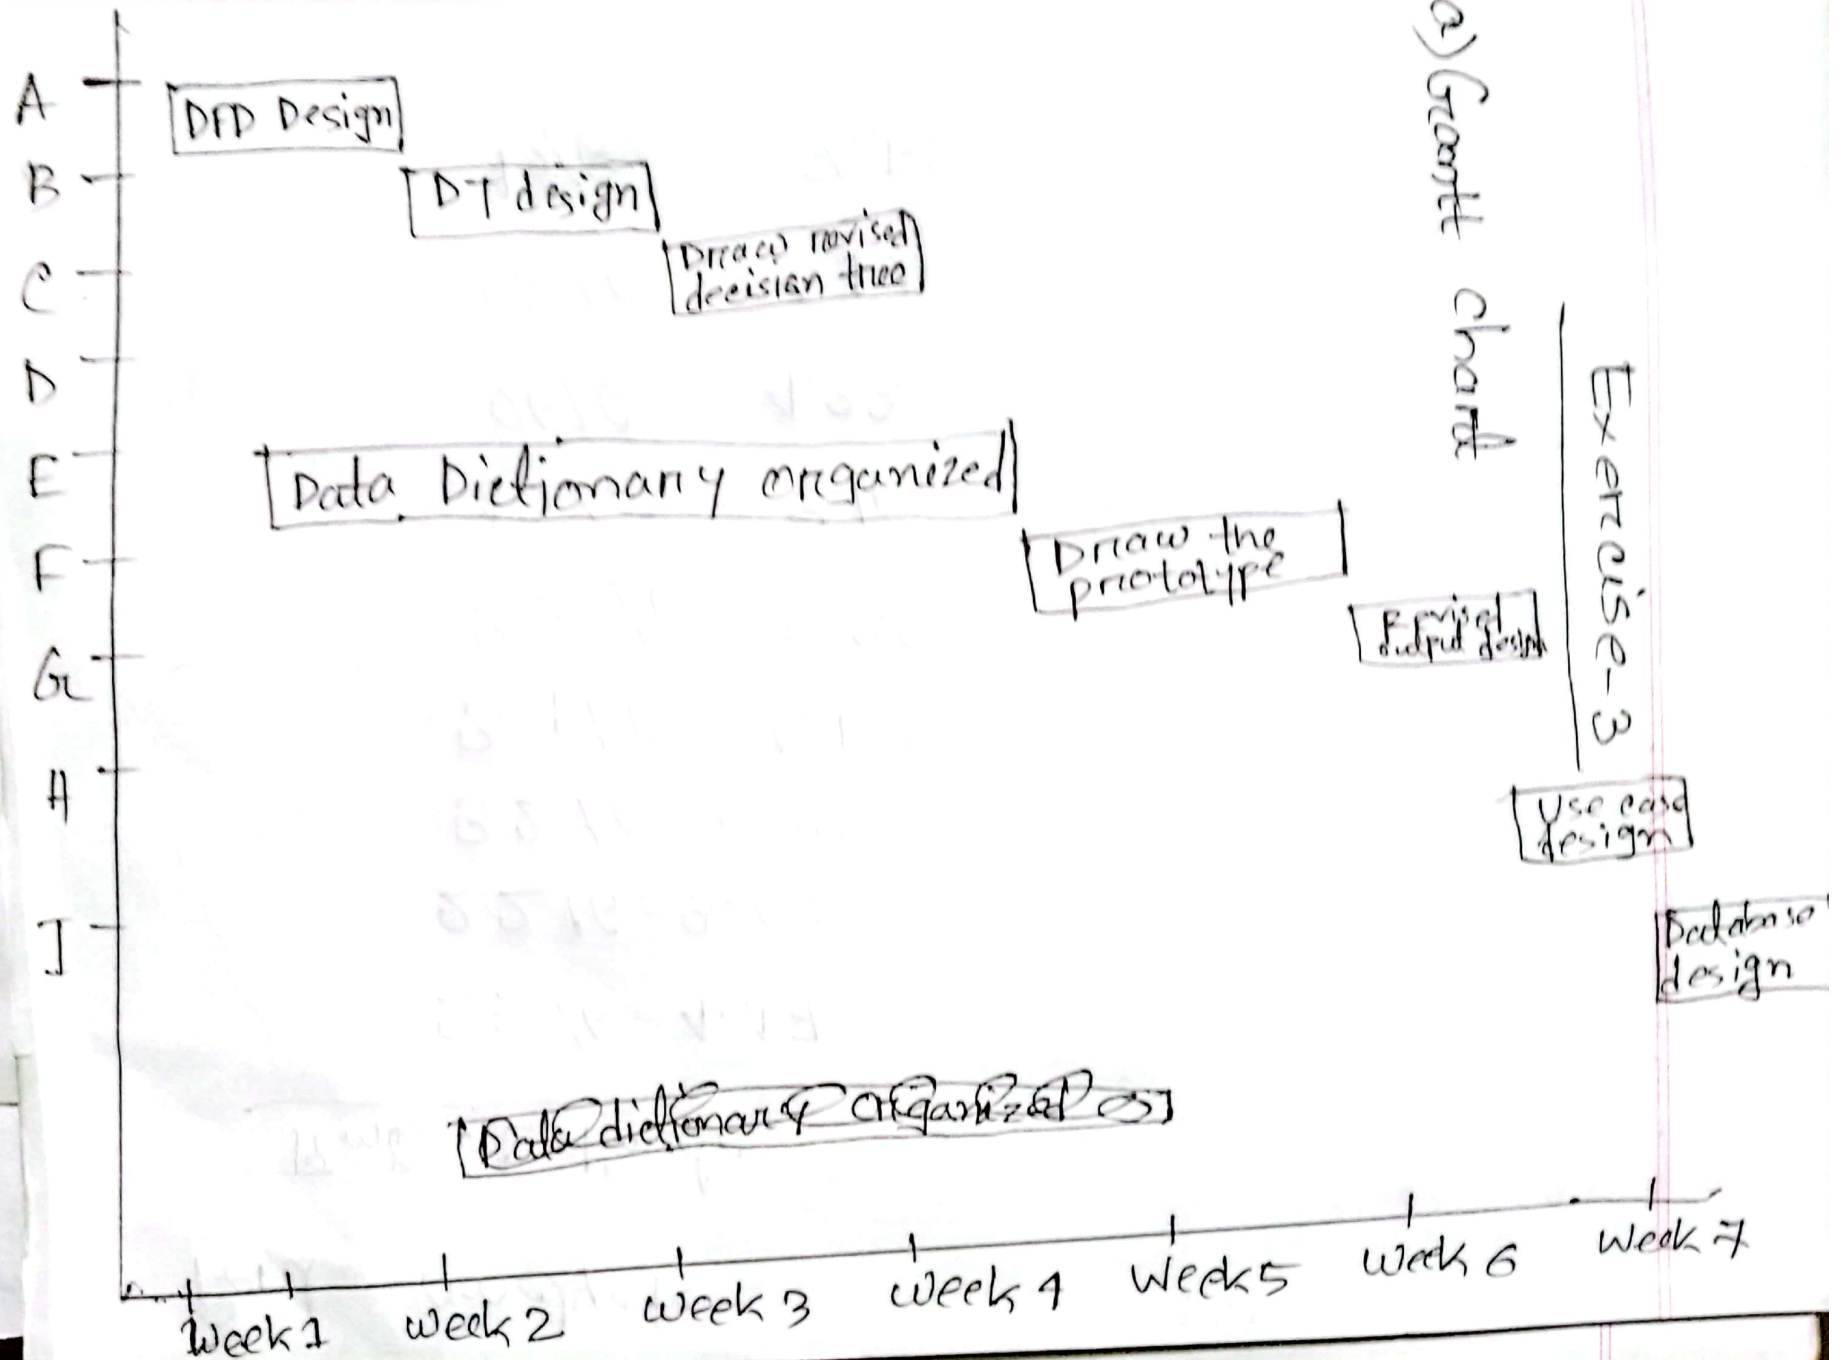 Exercise-3
a) Gantt chart
A
DFD Design
B
DT design
C
Draw revised
decision tree
D
E
Data Dictionary organized
F
Draw the
prototype
G
Revised
output design
H
Use case
design
I
Database
design
Data dictionary organized
Week 1
Week 2
Week 3
Week 4
Week 5
Week 6
Week 7